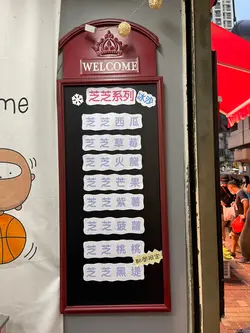 WELCOME
芝芝系列 冰沙
芝芝西瓜
芝芝草莓
芝芝火龍
芝芝芒果
芝芝紫薯
芝芝菠蘿
芝芝桃桃
芝芝黑提
me